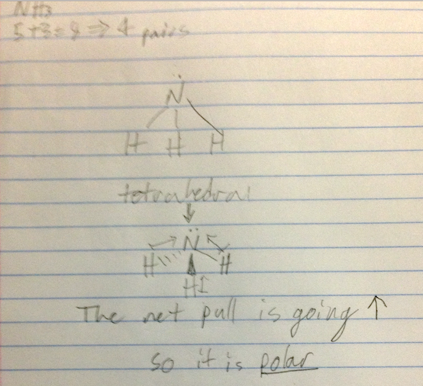 NH3
5+3=8 ⇒ 4 pairs
N̈
H H H
tetrahedral
↓
N̈
H H
H
The net pull is going ↑
so it is polar